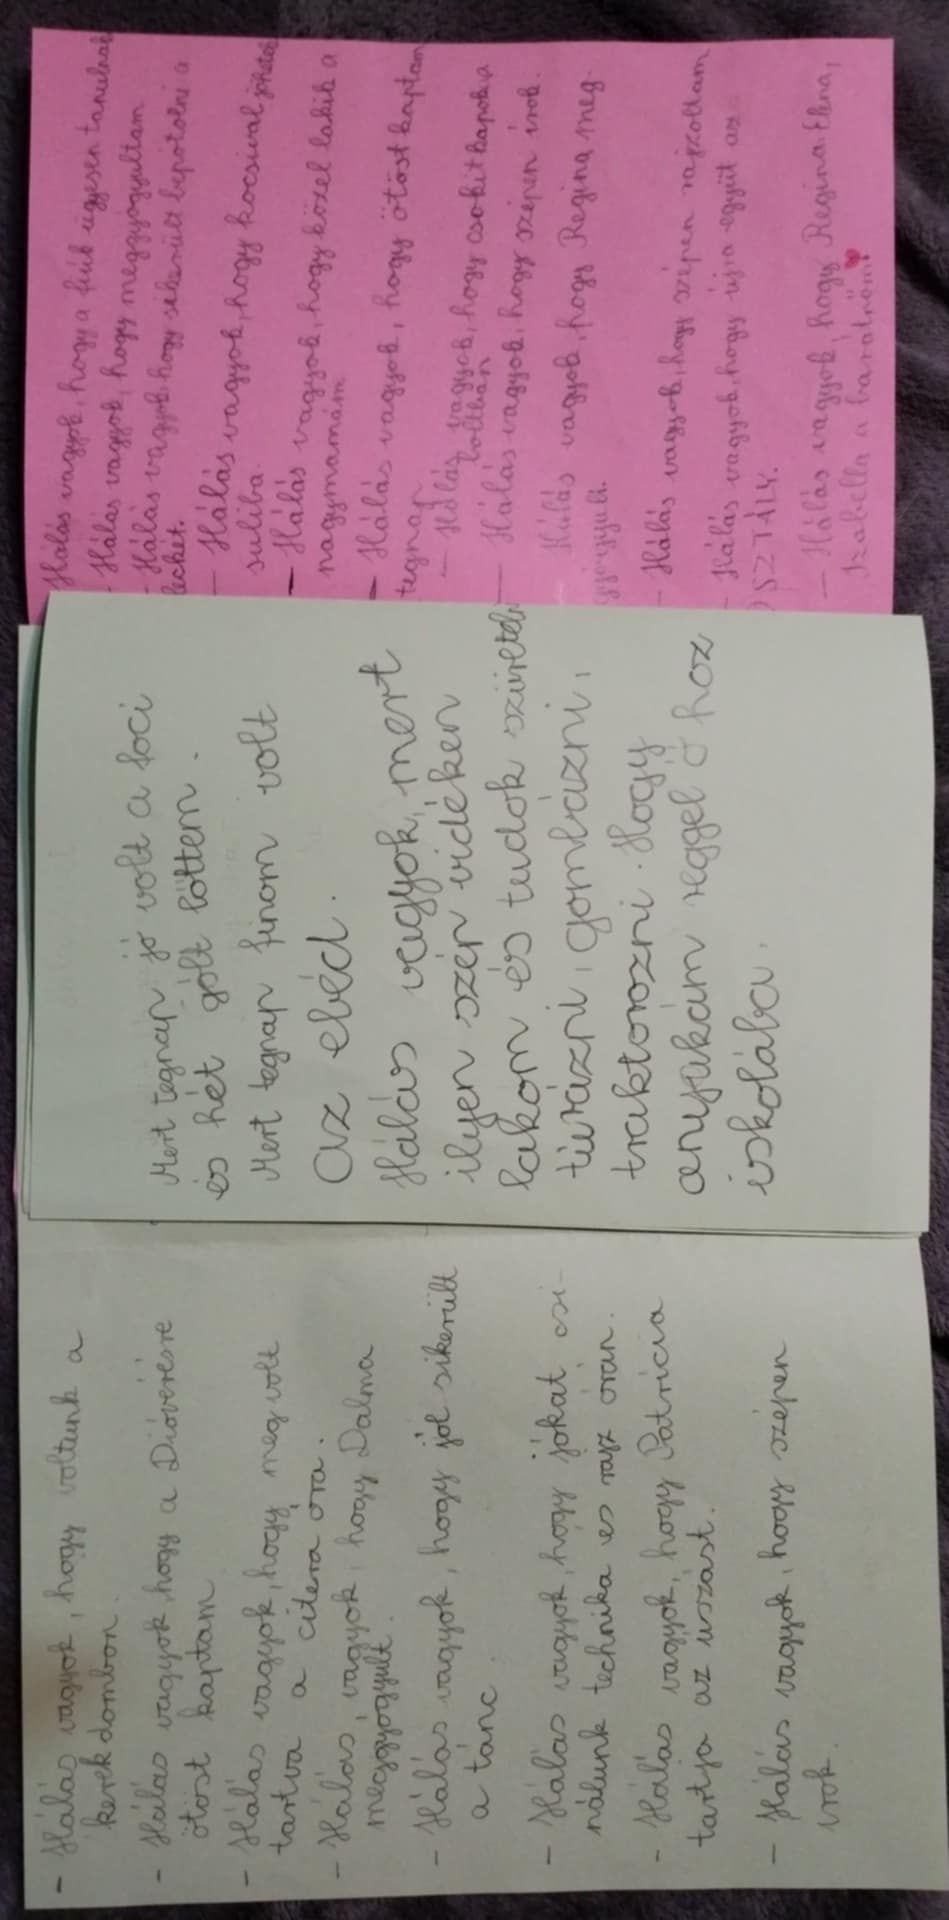 - Hálás vagyok, hogy voltunk a
kerek dombon.
- Hálás vagyok, hogy a Dióverésre
ötöst kaptam
- Hálás vagyok, hogy meg volt
tartva a citera óra.
- Hálás, vagyok, hogy Dalma
meggyógyult.
- Hálás vagyok, hogy jól sikerült
a tánc
- Hálás vagyok, hogy jókat csi-
nálunk technika es rajz órán.
- Hálás vagyok, hogy Patricia
tartja az uszást.
- Hálás vagyok, hogy szépen
irok.
Mert tegnap jó volt a foci
és hét gólt löttem.
Mert tegnap finom volt
az ebéd.
Hálás vagyok, mert
ilyen szép vidéken
lakom és tudok szüretelni
túrázni, gombázni,
traktorozni. Hogy
anyukám reggel ő hoz
iskolába.
Hálás vagyok, hogy a fiúk ügyesen tanulnak
- Hálás vagyok, hogy meggyógyultam
- Hálás vagyok hogy sikerült bepótolni a
leckét.
- Hálás vagyok, hogy kocsival jöhetek
suliba.
- Hálás vagyok, hogy közel lakik a
nagymamám
- Hálás vagyok, hogy ötöst kaptam
tegnap
- Hálás vagyok, hogy csokit kapok a
boltban
- Hálás vagyok, hogy szépen irok.
Hálás vagyok, hogy Regina meg-
gyógyult.
- Hálás vagyok, hogy szépen rajzoltam
- Hálás vagyok, hogy újra együt az
OSZTÁLY.
- Hálás vagyok, hogy Regina
Izabella a barátnőm!